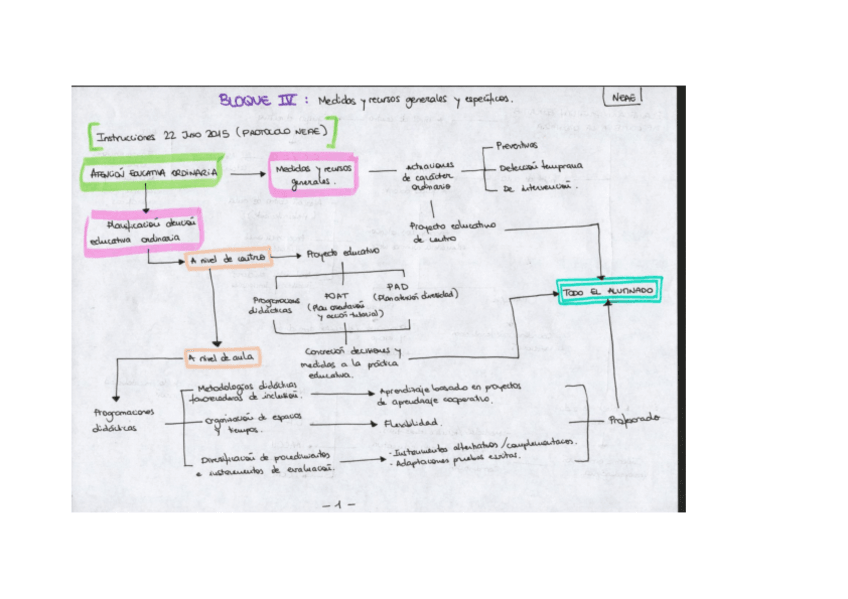 BLOQUE IV : Medidas y recursos generales y específicos.
NEAE
Instrucciones 22 Junio 2015 (PROTOCOLO NEAE)
ATENCIÓN EDUCATIVA ORDINARIA
Medidas y recursos
generales.
actuaciones
de carácter
ordinario
Preventivas
Detección temprana
De intervención.
Planificación atención
educativa ordinaria
Proyecto educativo
de centro
A nivel de centro
Proyecto educativo
Programaciones
didácticas
POAT
(Plan orientación
y acción tutorial)
PAD
(Plan atención diversidad)
TODO EL ALUMNADO
A nivel de aula
Concreción decisiones y
medidas a la práctica
educativa.
Programaciones
didácticas
Metodologías didácticas
favorecedoras de inclusión.
Aprendizaje basado en proyectos
de aprendizaje cooperativo.
Organización de espacios
y tiempos.
Flexibilidad.
Profesorado
Diversificación de procedimientos
e instrumentos de evaluación.
- Instrumentos alternativos/complementarios.
- Adaptaciones pruebas escritas.
- 1 -